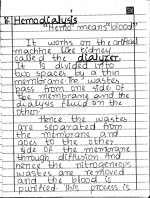 Hemodialysis
"Hemo" means "blood"
It works on the artificial
machine like kidney
called the dialyzer.
It is divided into
two spaces by a thin
membrane. The wastes
pass from one side of
the membrane and the
dialysis fluid on the
other.
Hence the wastes
are separated from
the membrane and
goes to the other
side of the membrane
through diffusion and
hence the nitrogeneous
wastes are removed
and the blood is
purified. This process is